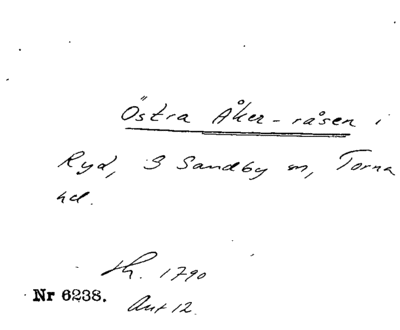 Östra Åker-råsen i
Ryd, S Sandby sn, Torna
hd.
th. 1790
Nr 6238.
Akt 12.